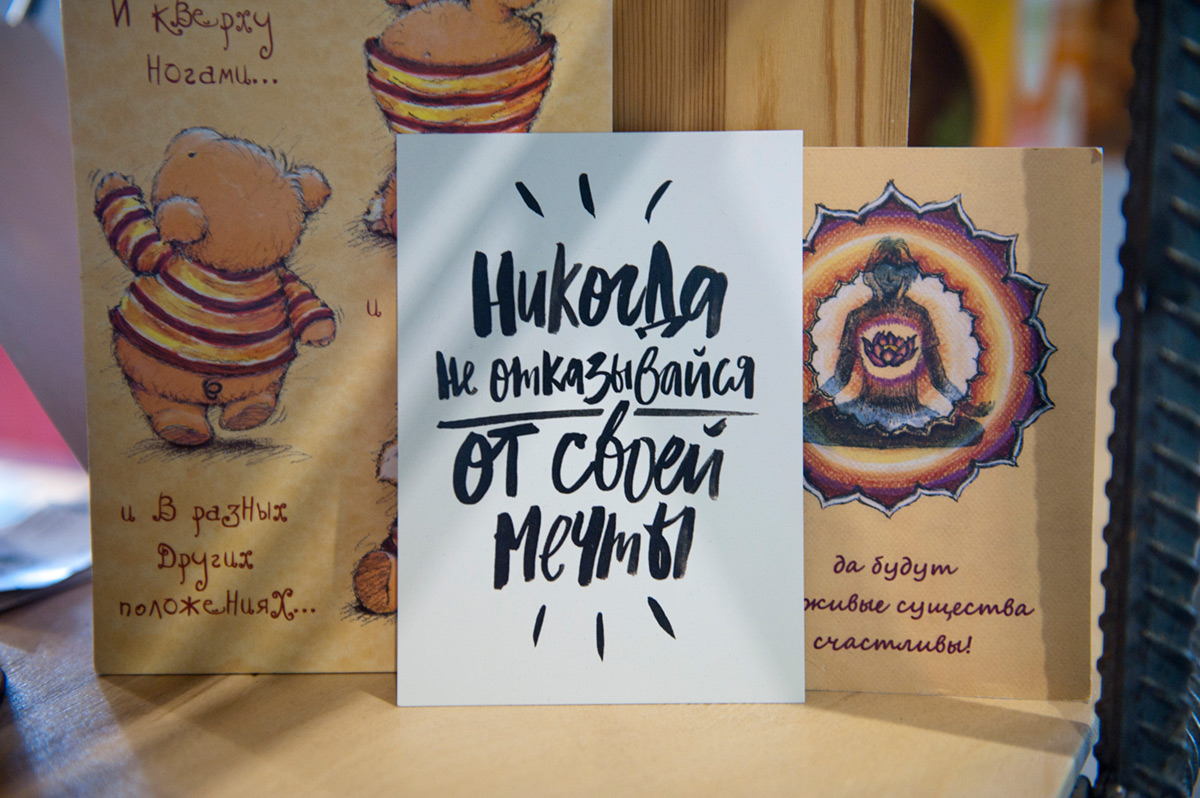 И кверху
Ногами...
и
и в разных
Других
положениях...
Никогда
не отказывайся
от своей
мечты
да будут
живые существа
счастливы!